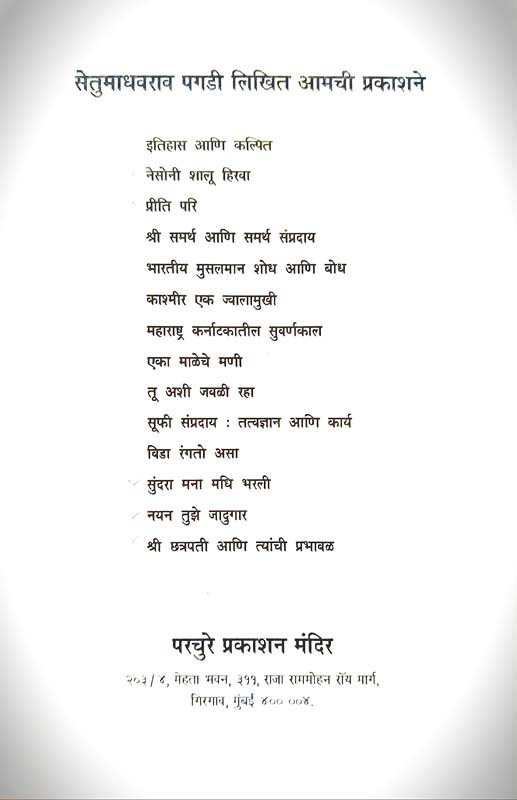 सेतुमाधवराव पगडी लिखित आमची प्रकाशने
इतिहास आणि कल्पित
नेसोनी शालू हिरवा
प्रीति परि
श्री समर्थ आणि समर्थ संप्रदाय
भारतीय मुसलमान शोध आणि बोध
काश्मीर एक ज्वालामुखी
महाराष्ट्र कर्नाटकातील सुवर्णकाल
एका माळेचे मणी
तू अशी जवळी रहा
सूफी संप्रदाय : तत्वज्ञान आणि कार्य
विडा रंगतो असा
सुंदरा मना मधि भरली
नयन तुझे जादुगार
श्री छत्रपती आणि त्यांची प्रभावळ
परचुरे प्रकाशन मंदिर
२०३/४, मेहता भवन, ३११, राजा राममोहन रॉय मार्ग,
गिरगाव, मुंबई ४०० ००४.